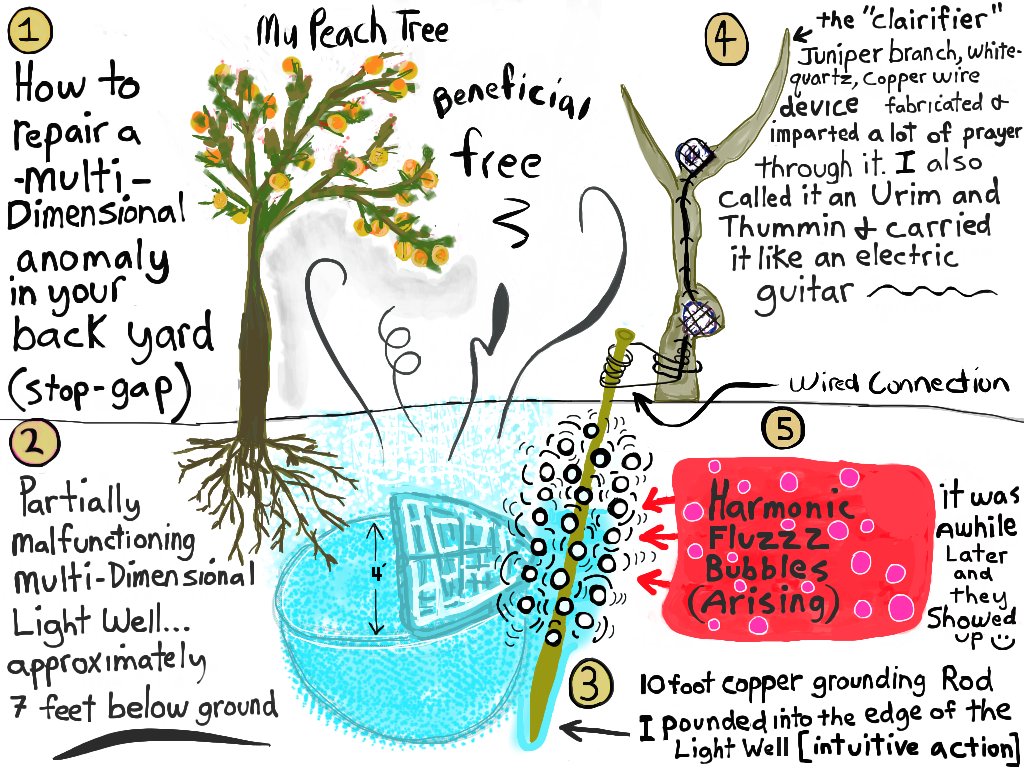 1
How to
repair a
-multi-
Dimensional
anomaly
in your
back yard
(stop-gap)
My Peach Tree
Beneficial
free
4
the "clairifier"
Juniper branch, white-
quartz, Copper wire
device fabricated &
imparted a lot of prayer
through it. I also
called it an Urim and
Thummin & carried
it like an electric
guitar
Wired Connection
2
Partially
malfunctioning
multi-Dimensional
Light Well...
approximately
7 feet below ground
4'
5
Harmonic
Fluzzz
Bubbles
(Arising)
it was
Awhile
Later
and
they
Showed
up
3
10 foot copper grounding Rod
I pounded into the edge of the
Light Well [intuitive action]